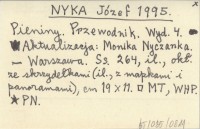 NYKA Józef 1995.
Pieniny. Przewodnik. Wyd. 4.
★ Aktualizacja: Monika Nyczanka.
– Warszawa. Ss. 264, il., okł.
ze skrzydełkami (il., z mapkami i
panoramami), cm 19 × 11. O MT, WHP.
★ PN.